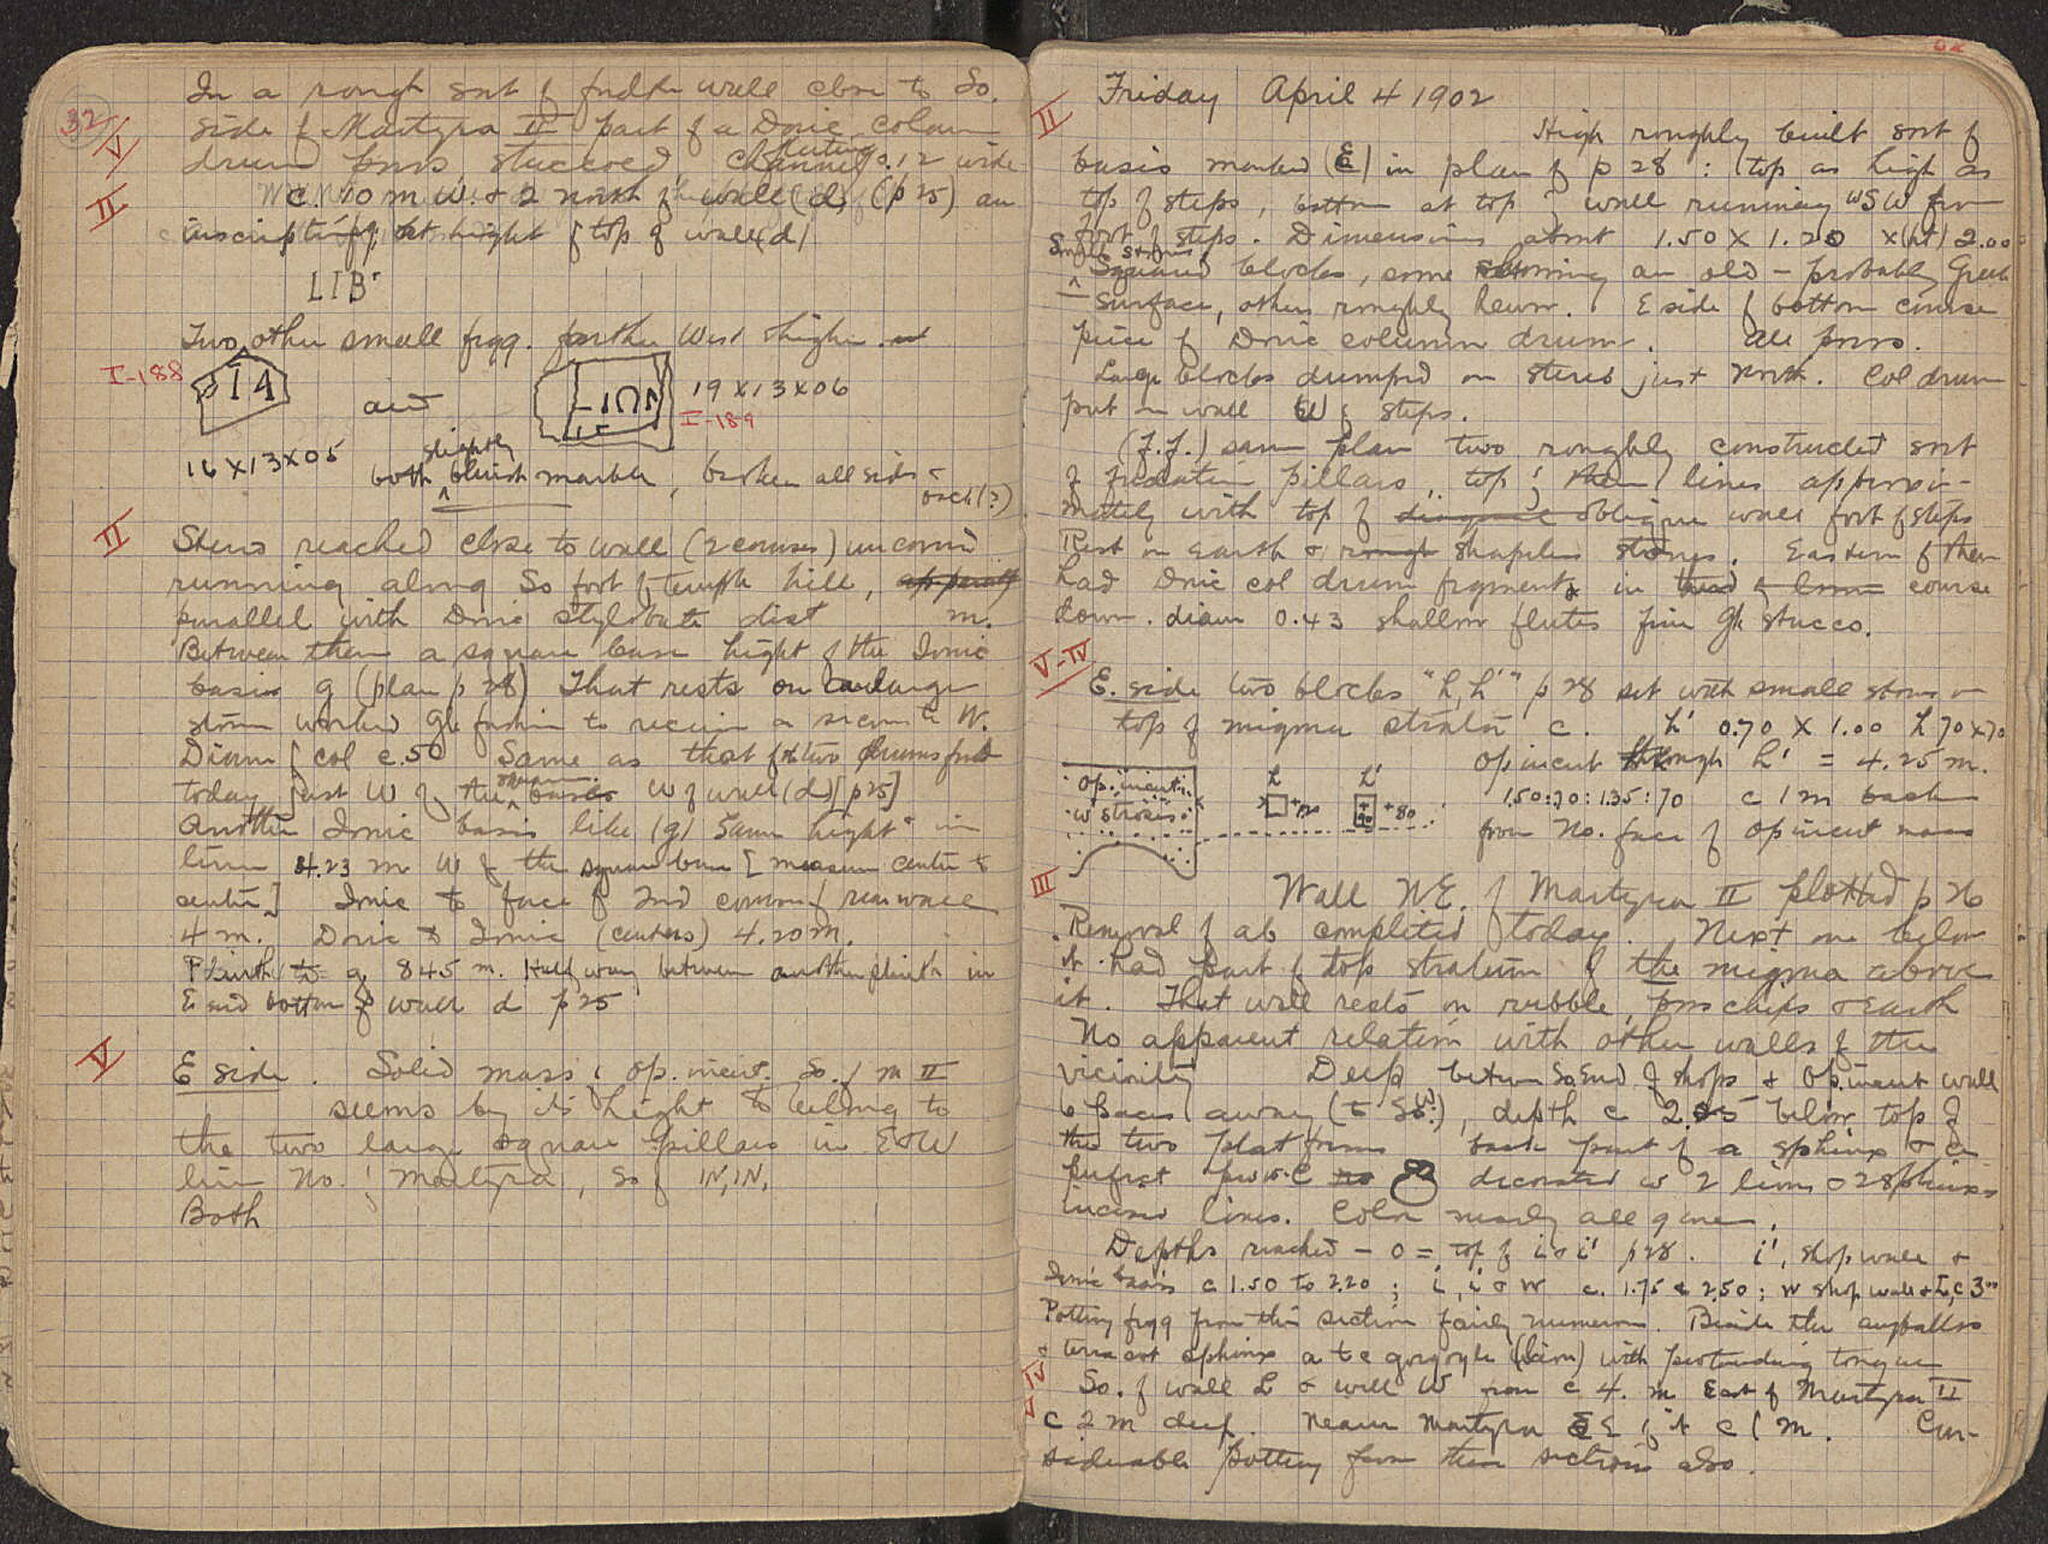 32
In a rough sort of fndtn wall close to So.
V
side of Martyra II part of a Doric column
fluting
drum poros stuccoed, channel 0.12 wide
II
c. 10 m W. & 2 north of wall (d) (p 25) an
inscription at height of top of wall (d)
LIB
Two other small frgg. farther West & higher
I-188
and
19 x 13 x 06
I-189
16 x 13 x 05
slightly
both bluish marble, broken all sides &
back (?)
II
Stereo reached close to wall (2 courses) uncovered
running along So foot of temple hill,
parallel with Doric stylobate dist m.
Between them a square base height of the Ionic
basis g (plan p 28) That rests on a large
stone worked Gk fashion to receive a
Diam of col c.50 Same as that of the two drums found
today just W of the square basis W of wall (d) [p 25]
Another Ionic basis like (g) same height & in
line 4.23 m W of the square base [measure center to
center] Ionic to face of 2nd course of rear wall
4 m. Doric to Ionic (centers) 4.20 m.
Plinth to g 8.45 m. Half way between another plinth in
E end bottom of wall d p 25
V
E side. Solid mass of op. incert. So. of M II
seems by its height to belong to
the two large square pillars in E & W
line No. of Martyra, So of
Both
Friday April 4 1902
II
High roughly built sort of
basis marked (E) in plan of p 28 : top as high as
top of steps, bottom at top of wall running WSW from
foot of steps. Dimensions about 1.50 x 1.20 x (ht) 2.00
Small stones
Squared blocks, some showing an old - probably Greek
surface, others roughly hewn. E side of bottom course
piece of Doric column drum. All poros.
Large blocks dumped on stereo just North. Col drum
put in wall W of steps.
(F.F.) same plan two roughly constructed sort
of foundation pillars, top of them lines approxi-
mately with top of oblique wall foot of steps
Rest on Earth & rough shapeless stones. Eastern of them
had Doric col drum fragments in course
down. diam 0.43 shallow flutes fine Gk stucco.
V-IV
E. side two blocks "h, h'" p 28 set with small stones on
top of migma stratum c. h' 0.70 x 1.00 h 70 x 70
op incert through h' = 4.25 m.
op. incert.
w stroses
h
h'
+80
1.50:70:1.35:70 c 1 m back
from No. face of op incert mass
III
Wall NE. of Martyra II plotted p 26
Removal of ab completed today. Next one below
it had part of top stratum of the migma above
it. That wall rests on rubble, poros chips & earth
No apparent relation with other walls of the
vicinity Deep between So End of shops & op. incert wall
6 paces away (to SW.), depth c 2.25 below top of
the two platforms back part of a sphinx & a
perfect proto-C decorated w 2 lions & 2 sphinxes
incised lines. Color nearly all gone.
Depths reached - 0 = top of i & i' p 28. i', shop wall &
Ionic basis c 1.50 to 2.20 ; i, i' & W c. 1.75 & 2.50 ; W shop wall & I, c 3 m
Pottery frgg from this section fairly numerous. Beside the aryballos
& terra cot sphinx a t c gorgoyle (lion) with protruding tongue
V-IV
So. of wall L & well W from c 4. m East of Martyra II
c 2 m deep. Nearer Martyra E of it c 1 m. Con-
siderable pottery from these sections also.